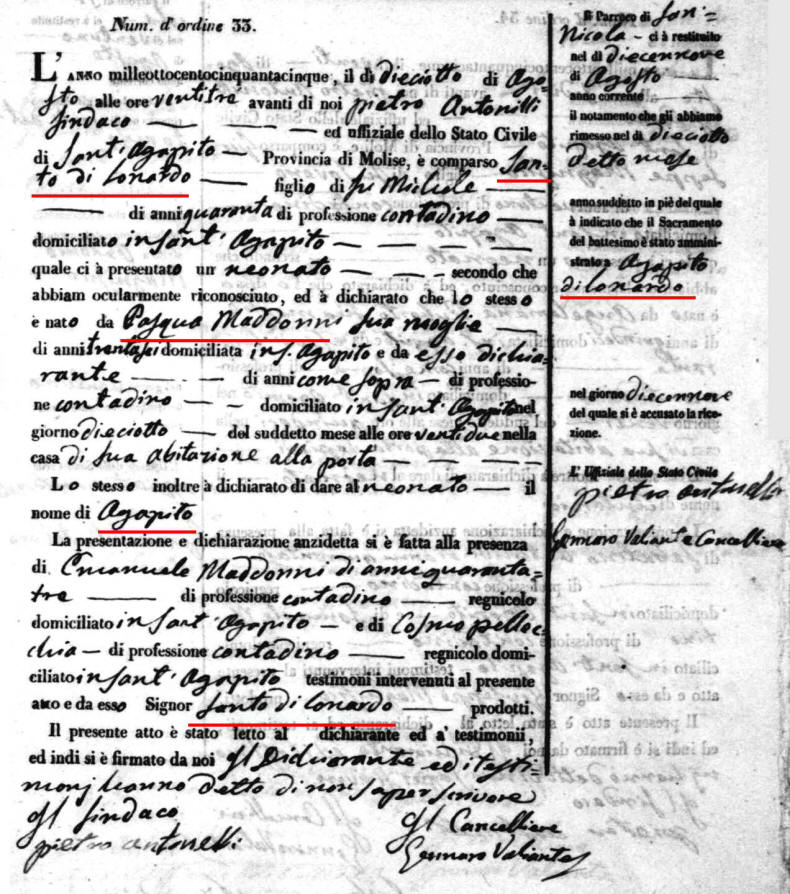 Num. d'ordine 33.
L'ANNO milleottocentocinquantacinque, il dì dieciotto di Ago-
sto alle ore ventitre avanti di noi pietro Antonilli
Sindaco ed uffiziale dello Stato Civile
di Sant'Agapito Provincia di Molise, è comparso San-
to di Lonardo figlio di fu Michele
di anni quaranta di professione contadino
domiciliato in Sant'Agapito
quale ci à presentato un neonato secondo che
abbiam ocularmente riconosciuto, ed à dichiarato che lo stesso
è nato da Pasqua Maddonni sua moglie
di anni trentasei domiciliata in S. Agapito e da esso dichia-
rante di anni come sopra di professio-
ne contadino domiciliato in Sant'Agapito nel
giorno dieciotto del suddetto mese alle ore ventidue nella
casa di sua abitazione alla porta
Lo stesso inoltre à dichiarato di dare al neonato il
nome di Agapito
La presentazione e dichiarazione anzidetta si è fatta alla presenza
di Emanuele Maddonni di anni quaranta-
tre di professione contadino regnicolo
domiciliato in Sant'Agapito e di Cosmo pelloc-
chia di professione contadino regnicolo domi-
ciliato in Sant'Agapito testimoni intervenuti al presente
atto e da esso Signor Santo di Lonardo prodotti.
Il presente atto è stato letto al dichiarante ed a' testimonii,
ed indi si è firmato da noi Il Dichiarante ed i testi-
monj hanno detto di non saper scrivere
Il Sindaco
pietro antonelli
Il Cancelliere
Gennaro Valiante
Il Parroco di San-
Nicola ci à restituito
nel dì diecennove
di Agosto
anno corrente
il notamento che gli abbiamo
rimesso nel dì dieciotto
detto mese
anno suddetto in piè del quale
à indicato che il Sacramento
del battesimo è stato ammini-
strato a Agapito
di Lonardo
nel giorno diecennove
del quale si è accusato la rice-
zione.
L'Uffiziale dello Stato Civile
pietro antonelli
Gennaro Valiante Cancelliere